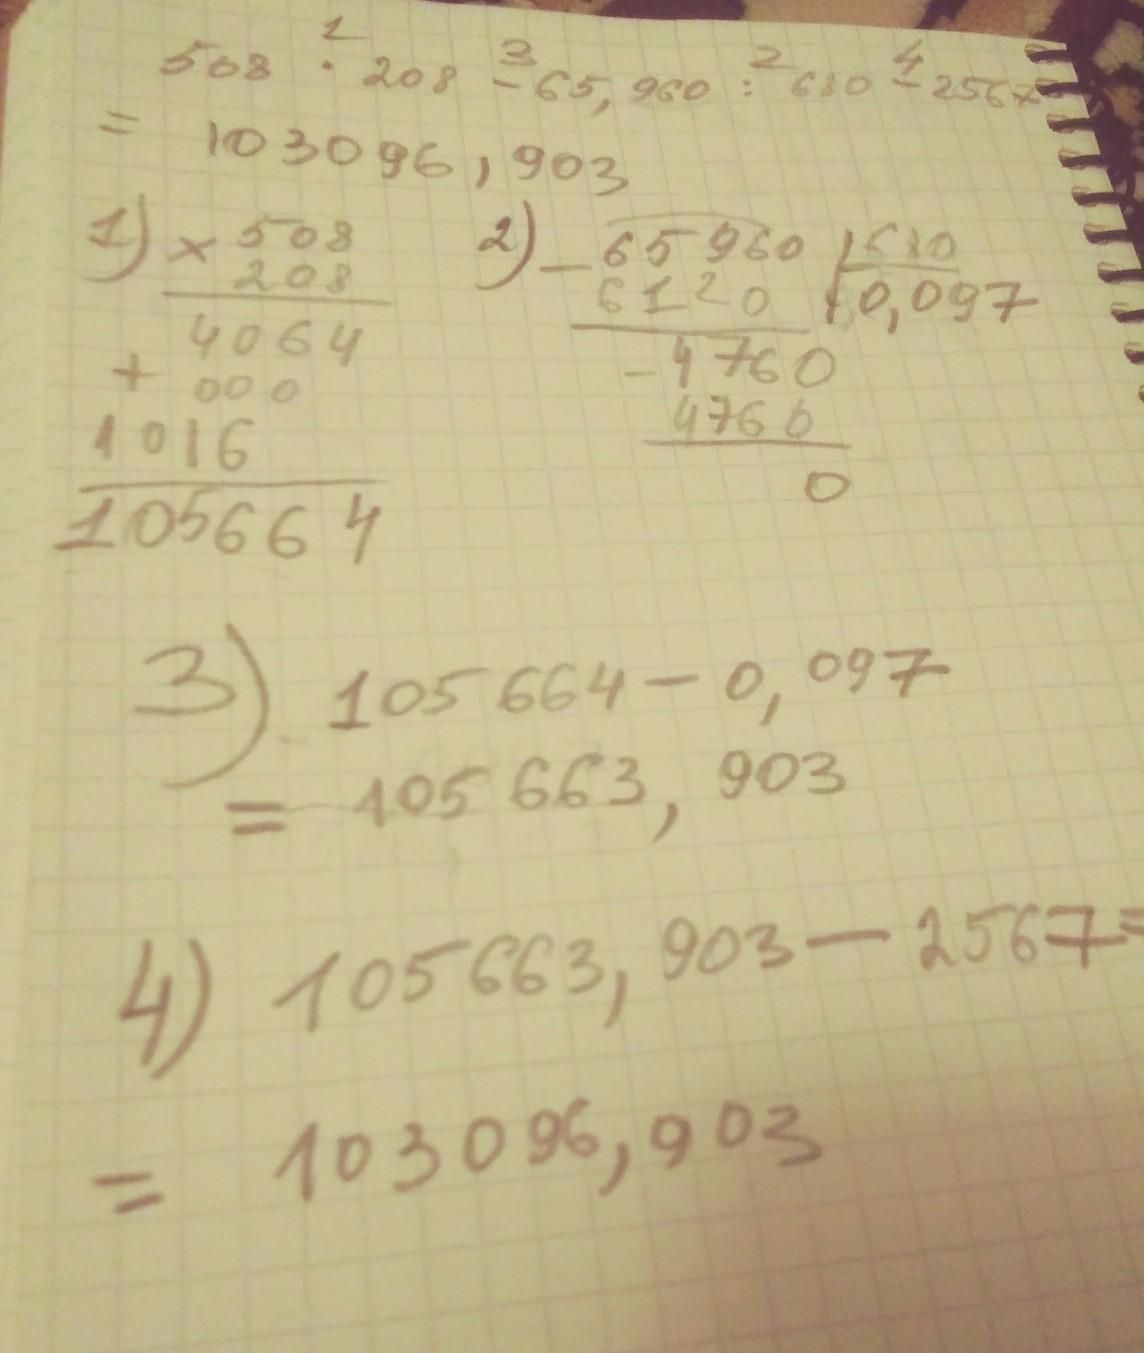 1 3 2 4
508 · 208 - 65,960 : 680 - 2567
= 103096,903
1) × 508
208
4064
+ 000
1016
105664
2) - 65960 680
6120 0,097
- 4760
4760
0
3) 105664 - 0,097
= 105663,903
4) 105663,903 - 2567 =
= 103096,903